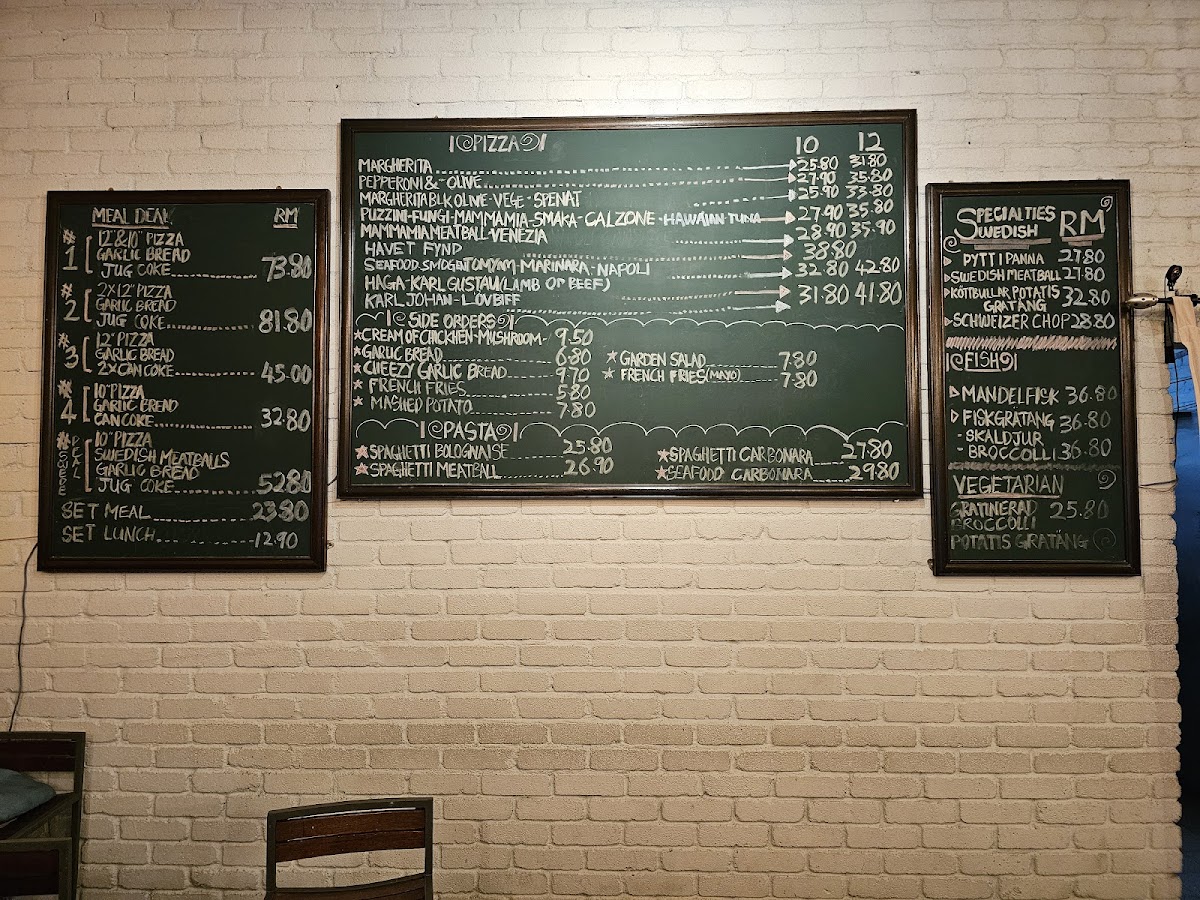 MEAL DEAL RM
#1 12"&10" PIZZA
GARLIC BREAD
JUG COKE 73.80
#2 2X12" PIZZA
GARLIC BREAD
JUG COKE 81.80
#3 12" PIZZA
GARLIC BREAD
2X CAN COKE 45.00
#4 10" PIZZA
GARLIC BREAD
CAN COKE 32.80
10" PIZZA
SWEDISH MEATBALLS
GARLIC BREAD
JUG COKE 52.80
SET MEAL 23.80
SET LUNCH 12.90
PIZZA 10 12
MARGHERITA 25.80 31.80
PEPPERONI & OLIVE 27.90 35.80
MARGHERITA BLK OLIVE-VEGE-SPENAT 25.90 33.80
PUZZINI-FUNGI-MAMMAMIA-SMAKA-CALZONE-HAWAIAN TUNA 27.90 35.80
MAMMAMIA MEATBALL-VENEZIA 28.90 35.90
HAVET FYND 38.80
SEAFOOD TOMYAM-MARINARA-NAPOLI 32.80 42.80
HAGA-KARL GUSTAU(LAMB OP BEEF) 31.80 41.80
KARL JOHAN-LOVBIFF
SIDE ORDERS
CREAM OF CHICKHEN-MUSHROOM 9.50
GARLIC BREAD 6.80
CHEEZY GARLIC BREAD 9.70
FRENCH FRIES 5.80
MASHED POTATO 7.80
GARDEN SALAD 7.80
FRENCH FRIES (MAYO) 7.80
PASTA
SPAGHETTI BOLOGNAISE 25.80
SPAGHETTI MEATBALL 26.90
SPAGHETTI CARBONARA 27.80
SEAFOOD CARBONARA 29.80
SPECIALTIES RM
SWEDISH
PYTT I PANNA 27.80
SWEDISH MEATBALL 27.80
KÖTTBULLAR POTATIS 32.80
GRATÄNG
SCHWEIZER CHOP 28.80
FISH
MANDELFISK 36.80
FISKGRÄTANG 36.80
- SKALDJUR
- BROCCOLLI 36.80
VEGETARIAN
GRATINERAD 25.80
BROCCOLLI
POTATIS GRATÄNG